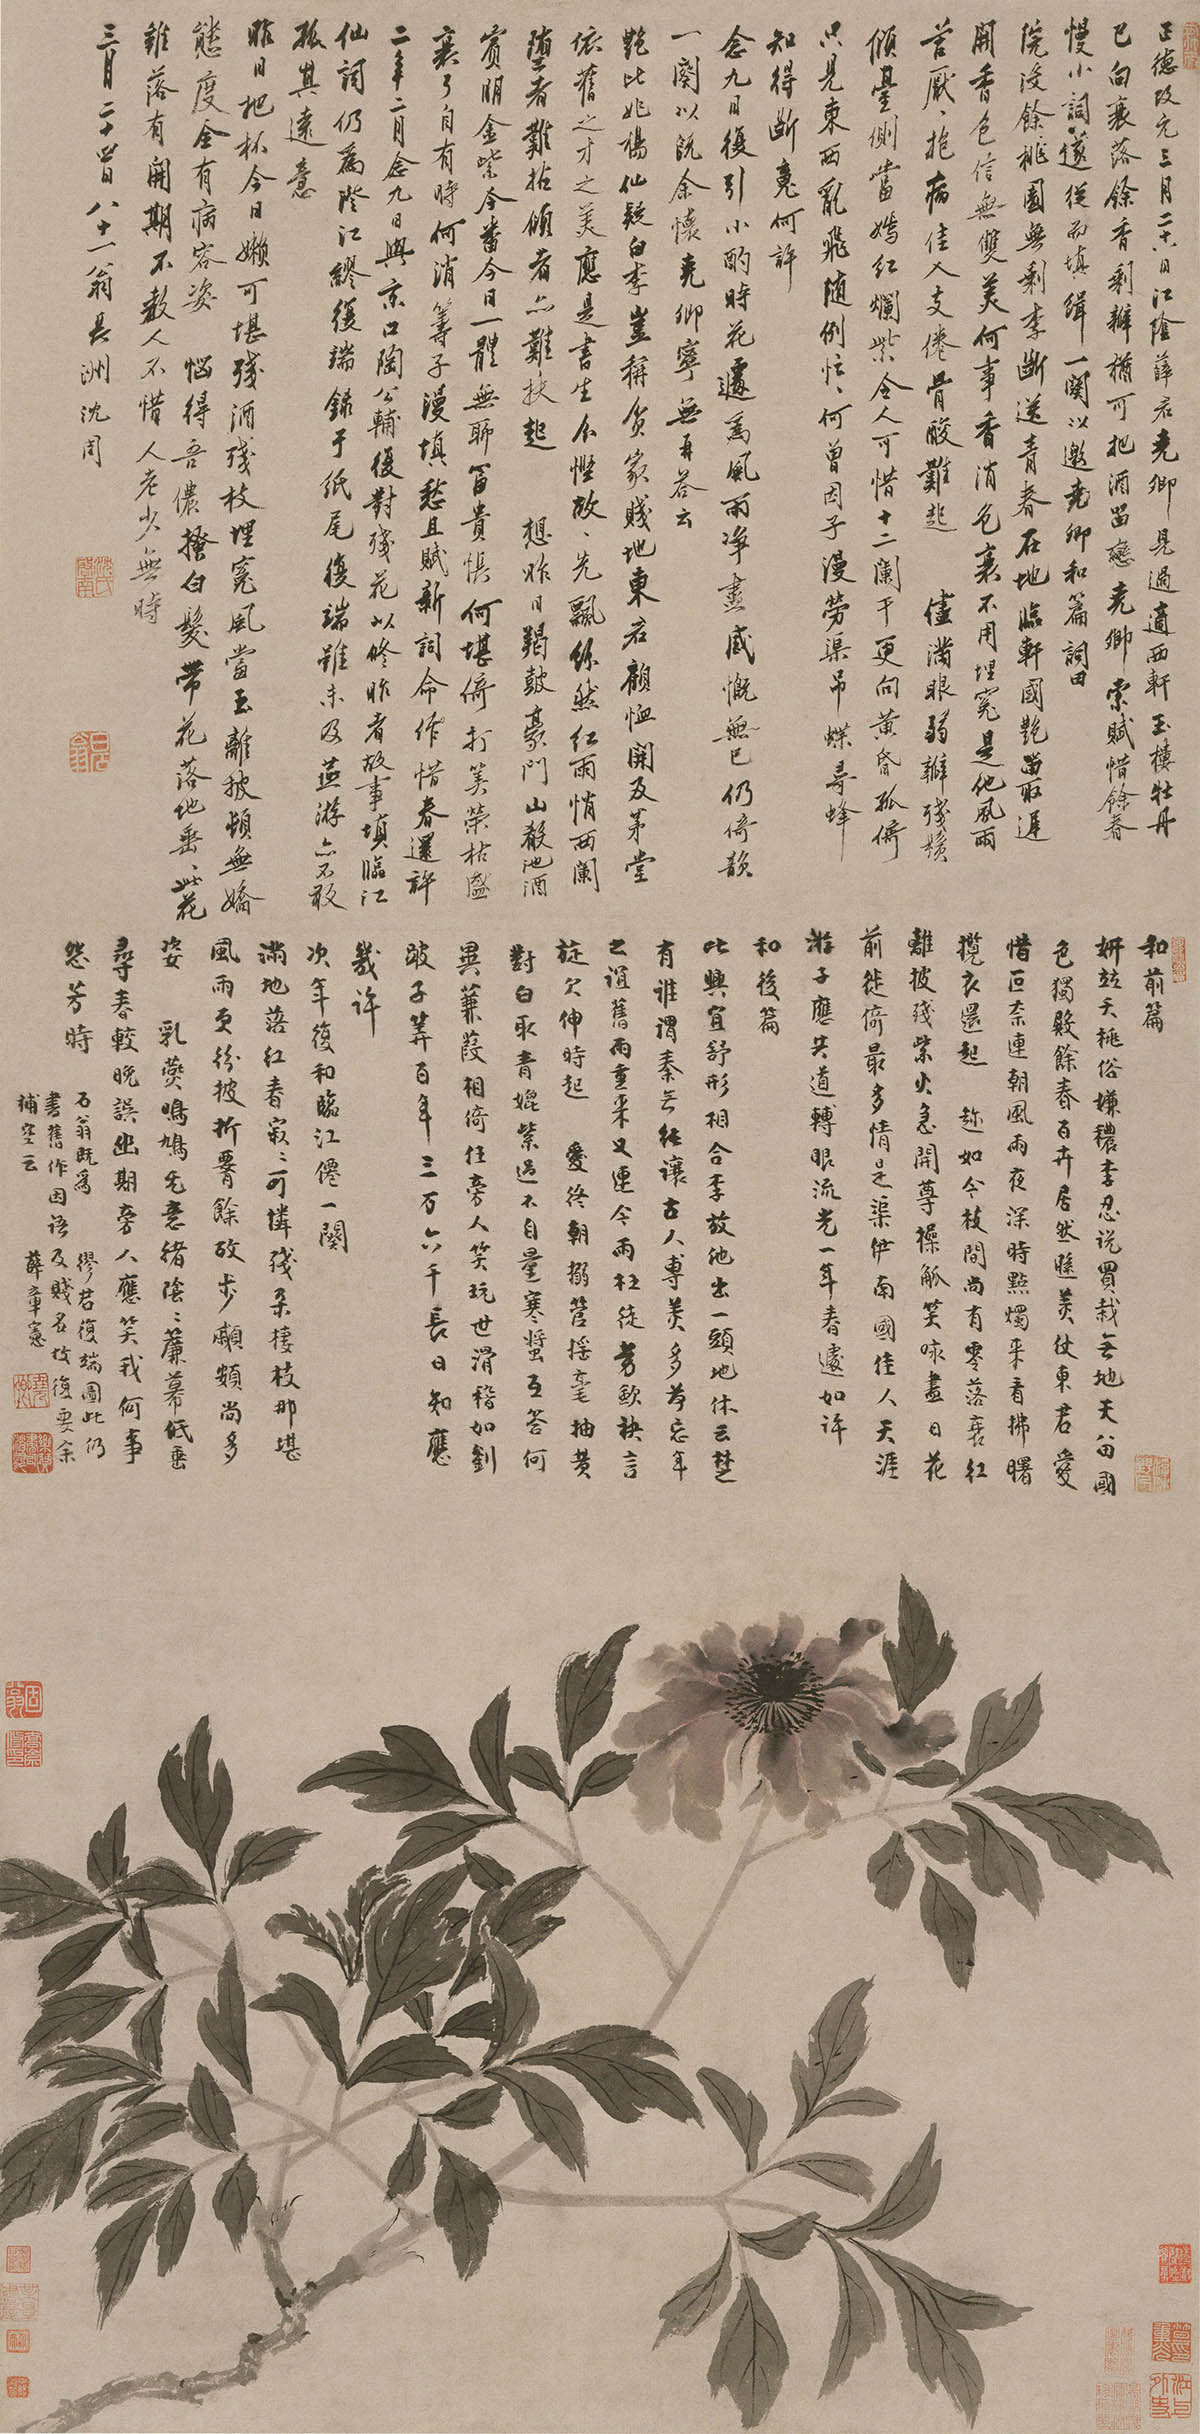 正德改元三月二十八日江陰薛君堯卿見過適西軒玉樓牡丹
已向衰落餘香剩瓣猶可把酒留戀堯卿索賦惜餘春
慢小詞遂從而填緝一闋以邀堯卿和篇詞曰
院沒餘桃園無剩李斷送青春在地臨軒國艷留取遲
開香色信無雙美何事香消色衰不用埋冤是他風雨
苦厭厭抱病佳人支倦骨酸難起　儘滿眼弱瓣殘鬚
傾臺側當嫣紅爛紫令人可惜十二闌干更向黃昏孤倚
只見東西亂飛隨例忙忙何曾因子漫勞渠吊蝶尋蜂
知得斷魂何許
念九日復引小酌時花遽為風雨淨盡感慨無已仍倚韻
一闋以既余懷堯卿寧無再答云
艷比姚楊仙疑白李豈稱貧家賤地東君顧恤開及茅堂
依舊之才之美應是書生分慳故故先飄紛然紅雨悄西闌
墮者難拈傾者亦難扶起　想昨日羯鼓豪門山殽池酒
賓朋金紫今番今日一體無聊富貴悵何堪倚打筭榮枯盛
衰了自有時何消籌子漫填愁且賦新詞命作惜春還許
二年二月念九日與京口陶公輔復對殘花以修昨者故事填臨江
仙詞仍為澄江繆復端錄于紙尾復端雖未及燕游亦不敢
孤其遠意
昨日把杯今日嬾可堪殘酒殘枝埋冤風當玉離披頓無嬌
態度全有病容姿　惱得吾儂搔白髮帶花落地垂垂此花
雖落有開期不教人不惜人老少無時
三月二十四日八十一翁長洲沈周
和前篇
妍玆夭桃俗嫌穠李忍說買栽無地天留國
色獨殿餘春百卉居然雖羨仗東君愛
惜叵奈連朝風雨夜深時點燭來看拂曙
攬衣還起　跡如今枝間尚有零落衰紅
離披殘紫火急開尊操觚笑咏盡日花
前徙倚最多情是渠伊南國佳人天涯
游子應共道轉眼流光一年春遽如許
和後篇
此興宜舒形相合李放他出一頭地休云楚
有誰謂秦無紅讓古人專美多為忘年
之誼舊雨重來又連今雨枉徒勞歐袂言
旋欠伸時起　愛終朝搦管搖毫抽黃
對白取青媲紫過不自量寒螿互答何
異蒹葭相倚任旁人笑玩世滑稽如劉
跛子筭百年三万六千長日知應
幾許
次年復和臨江僊一闋
滿地落紅春寂寂可憐殘朵棲枝那堪
風雨更紛披折要餘故步顣頞尚多
姿　乳燕鳴鳩無意緒陰陰簾幕低垂
尋春較晚誤幽期旁人應笑我何事
怨芳時
石翁既為　繆君復端圖此仍
書舊作因語及賤名故復要余
補空云　　薛章憲